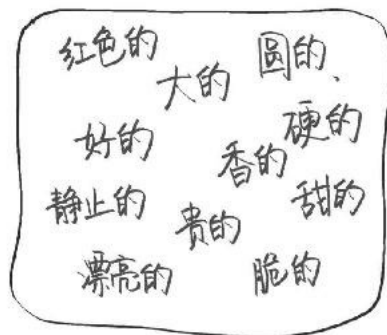 红色的
大的
圆的、
好的
硬的
香的
静止的
贵的
甜的
漂亮的
脆的